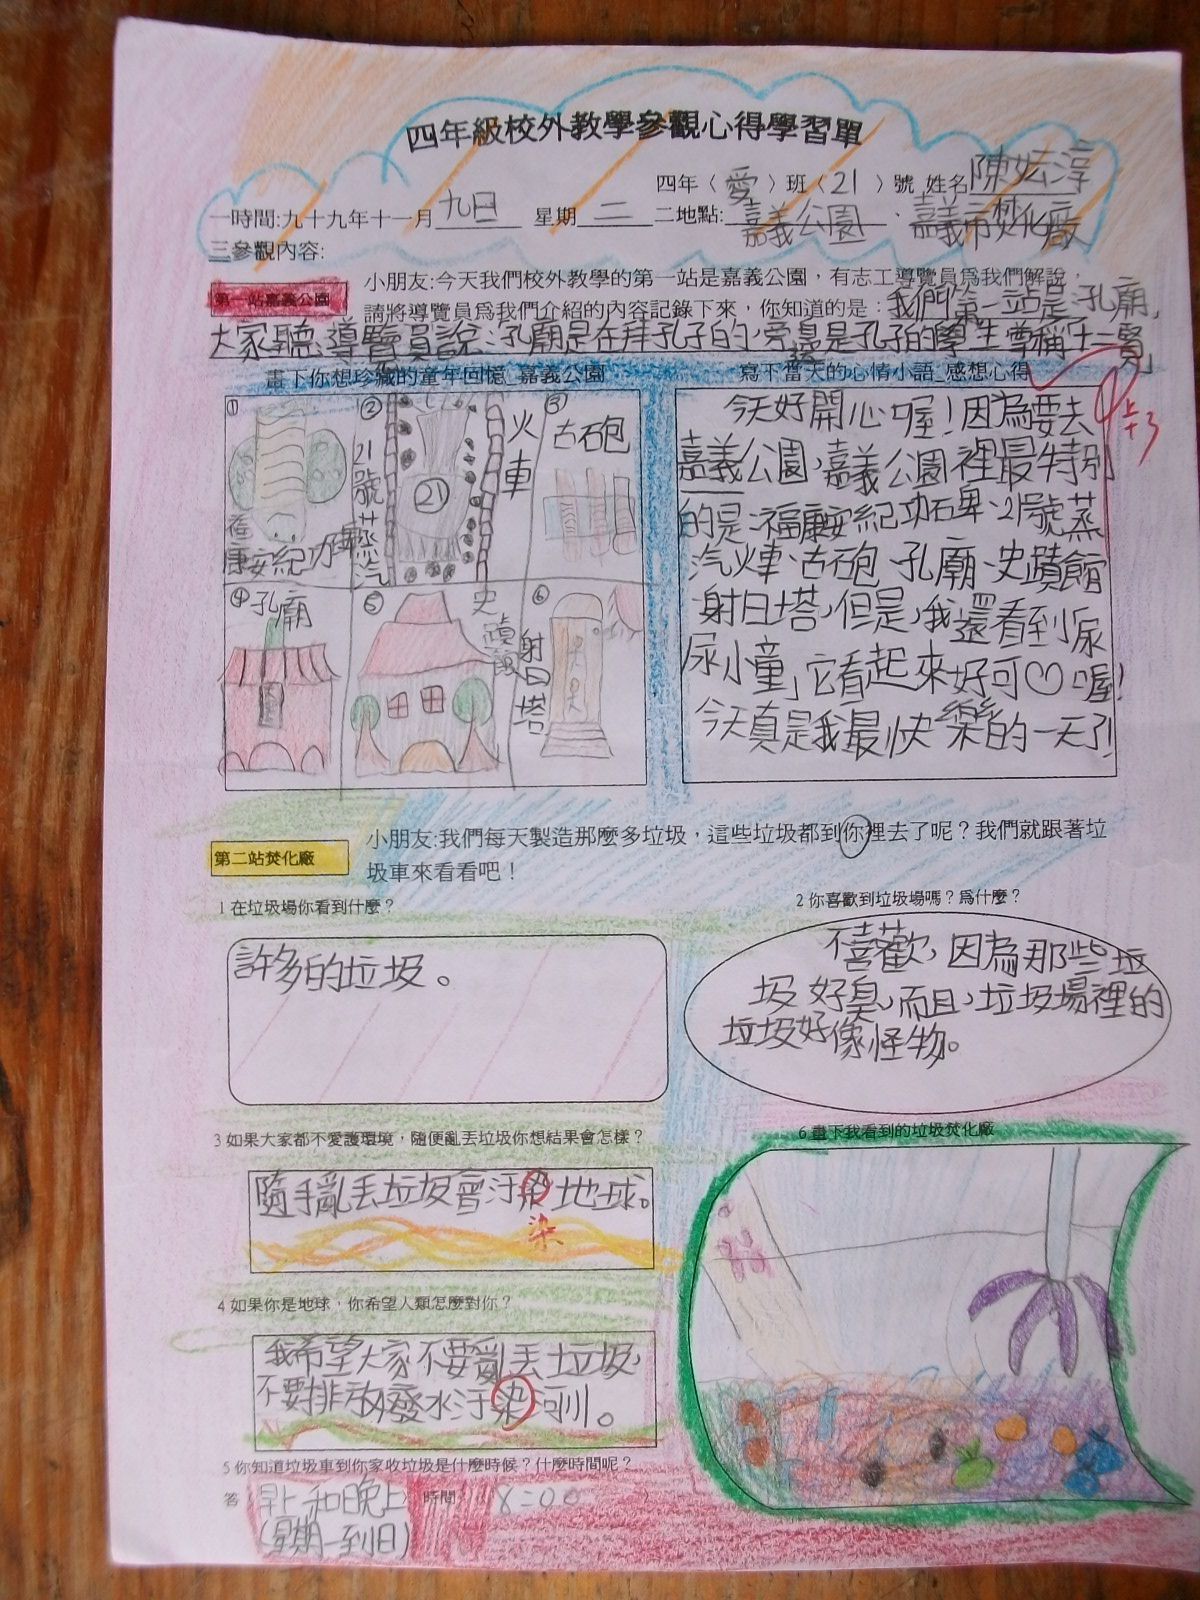 四年級校外教學參觀心得學習單
四年〈愛〉班〈21〉號 姓名陳宏淳
一時間:九十九年十一月九日 星期二 二地點:嘉義公園、嘉義市焚化廠
三參觀內容:
第一站嘉義公園
小朋友:今天我們校外教學的第一站是嘉義公園，有志工導覽員爲我們解說，
請將導覽員爲我們介紹的內容記錄下來，你知道的是：我們第一站是孔廟，
大家聽導覽員說：孔廟是在拜孔子的，旁邊是孔子的學生尊稱「十二賢」
畫下你想珍藏的童年回憶_嘉義公園
①
福康安紀功碑
②
21號蒸汽火車
21
③
古砲
④孔廟
⑤
史蹟館
⑥
射日塔
寫下當天的心情小語_感想心得
今天好開心喔！因為要去
嘉義公園，嘉義公園裡最特別
的是：福康安紀功碑、21號蒸
汽火車、古砲、孔廟、史蹟館
射日塔，但是，我還看到「尿
尿小童」它看起來好可♡喔！
今天真是我最快樂的一天了！
第二站焚化廠
小朋友:我們每天製造那麼多垃圾，這些垃圾都到你裡去了呢？我們就跟著垃
圾車來看看吧！
1 在垃圾場你看到什麼？
許多的垃圾。
2 你喜歡到垃圾場嗎？爲什麼？
不喜歡，因為那些垃
圾好臭，而且，垃圾場裡的
垃圾好像怪物。
3 如果大家都不愛護環境，隨便亂丟垃圾你想結果會怎樣？
隨手亂丟垃圾會汙染地球。
染
4 如果你是地球，你希望人類怎麼對你？
我希望大家不要亂丟垃圾，
不要排放廢水汙染河川。
5 你知道垃圾車到你家收垃圾是什麼時候？什麼時間呢？
答 早上和晚上 時間 8:00
(星期一到日)
6 畫下我看到的垃圾焚化廠